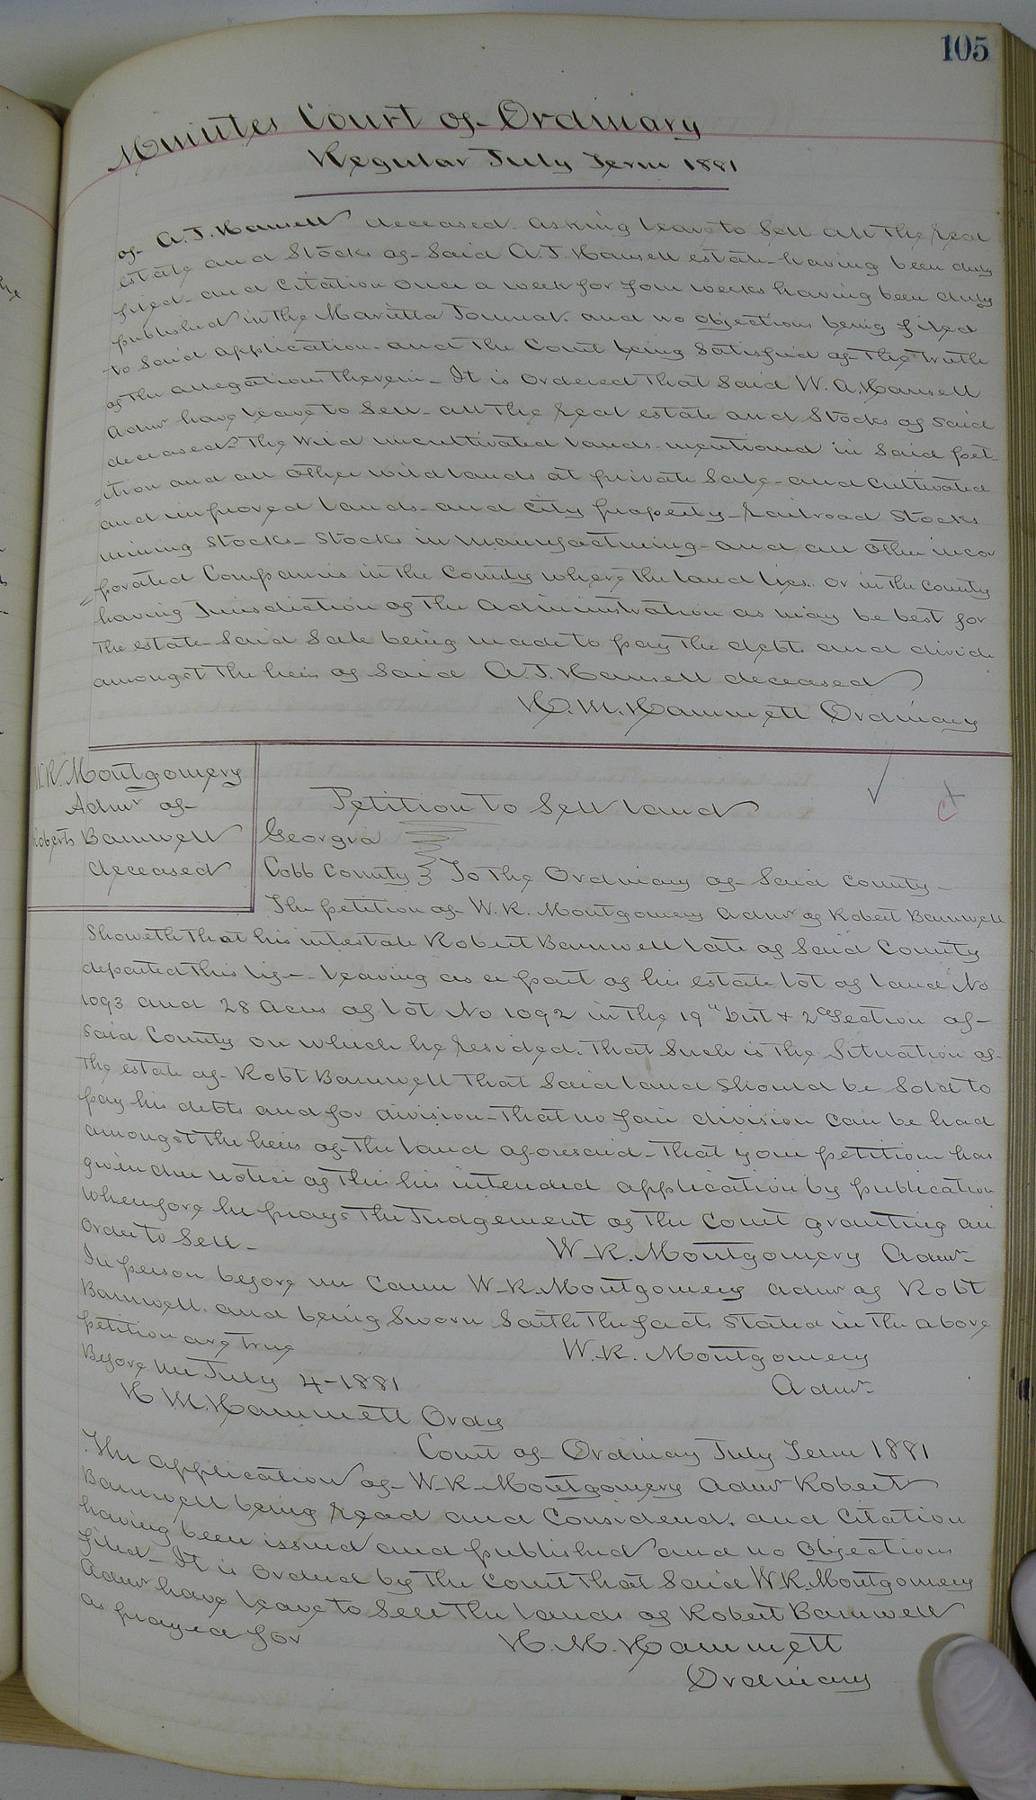 105
Minutes Court of Ordinary
Regular July Term 1881
of A.J. Hansell deceased asking leave to sell all the real
estate and Stocks of said A.J. Hansell estate having been duly
filed and citation once a week for four weeks having been duly
published in the Marietta Journal and no objections being filed
to said application and the Court being Satisfied of the truth
of the allegations therein - It is ordered that said W. A. Hansell
Admr have leave to sell all the real estate and Stocks of said
deceased. The wild uncultivated lands mentioned in said pet-
=ition and all other wild lands at private Sale and cultivated
and improved lands and city property - Railroad Stocks
mining Stocks - Stocks in manufacturing and all other incor
=porated Companies in the County where the land lies or in the county
having Jurisdiction of the Administration as may be best for
the estate - Said Sale being made to pay the debts and divide
amongst the heirs of said A.J. Hansell deceased
H. M. Hammett Ordinary
W.R. Montgomery
Admr of
Roberts Barnwell
deceased
Petition to Sell land
Georgia
Cobb County } To the Ordinary of Said County -
The petition of W. R. Montgomery admr of Robert Barnwell
Showeth that his intestate Robert Barnwell late of Said County
departed this life - leaving as a part of his estate lot of land No
1093 and 28 acres of lot No 1092 in the 19" Dist & 2d Section of
said County on which he resided. That Such is the Situation of
the estate of Robt Barnwell that said land should be sold to
pay his debts and for division - That no fair division can be had
amongst the heirs of the land aforesaid - That your petitioner has
given due notice of this his intended application by publication
wherefore he prays the Judgement of the Court granting an
order to Sell -
W. R. Montgomery Admr
In person before me came W. R. Montgomery admr of Robt
Barnwell and being Sworn Saith the facts stated in the above
petition are true
W. R. Montgomery
Admr
Before me July 4-1881
H M. Hammett Ordy
Court of Ordinary July Term 1881
The application of W. R. Montgomery admr Robert
Barnwell being read and Considered. and Citation
having been issued and published and no Objections
filed - It is ordered by the Court that Said W. R. Montgomery
Admr have leave to Sell the lands of Robert Barnwell
as prayed for
H. M. Hammett
Ordinary